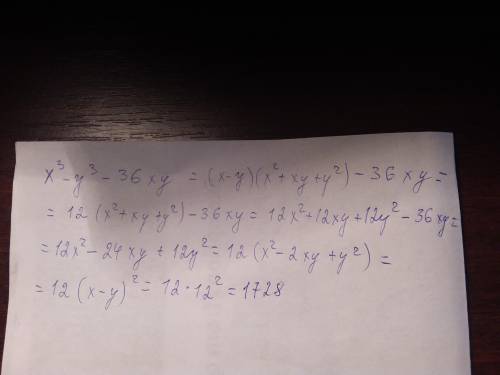 x³-y³-36xy = (x-y)(x²+xy+y²)-36xy=
=12(x²+xy+y²)-36xy=12x²+12xy+12y²-36xy=
=12x²-24xy+12y²=12(x²-2xy+y²)=
=12(x-y)²=12·12²=1728